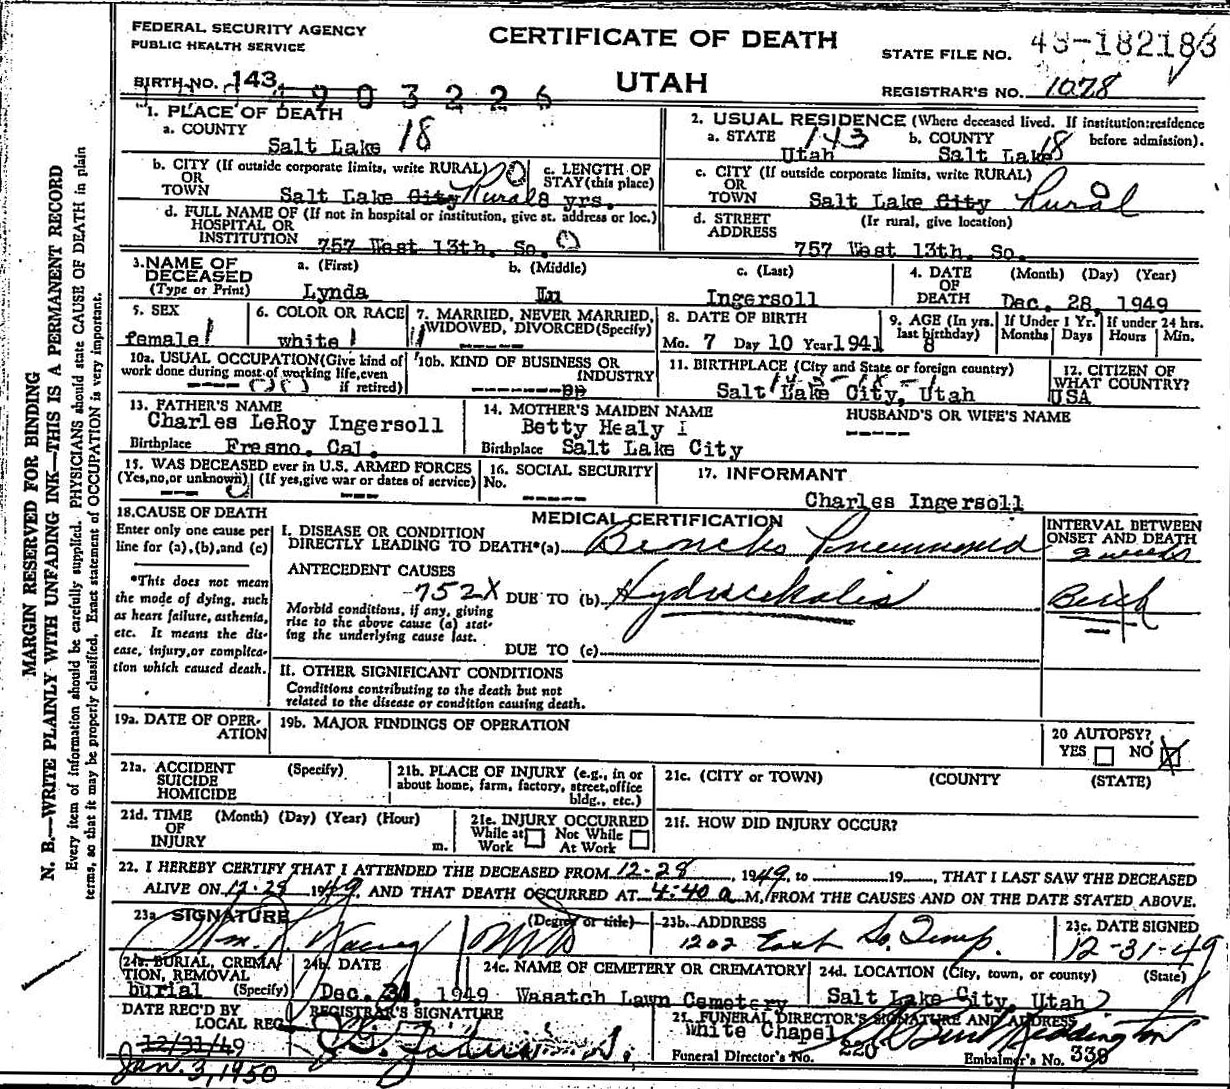 FEDERAL SECURITY AGENCY
PUBLIC HEALTH SERVICE
CERTIFICATE OF DEATH
UTAH
STATE FILE NO. 49-182183
BIRTH NO. 143 903226
REGISTRAR'S NO. 1078
MARGIN RESERVED FOR BINDING
N. B.—WRITE PLAINLY WITH UNFADING INK—THIS IS A PERMANENT RECORD
Every item of information should be carefully supplied. PHYSICIANS should state CAUSE OF DEATH in plain
terms, so that it may be properly classified. Exact statement of OCCUPATION is very important.
1. PLACE OF DEATH
a. COUNTY
Salt Lake 18
2. USUAL RESIDENCE (Where deceased lived. If institution:residence before admission).
a. STATE 143 b. COUNTY 18
Utah Salt Lake
b. CITY (If outside corporate limits, write RURAL) 0
OR
TOWN Salt Lake City Rural
c. LENGTH OF
STAY (this place)
8 yrs.
c. CITY (If outside corporate limits, write RURAL)
OR
TOWN Salt Lake City Rural
d. FULL NAME OF (If not in hospital or institution, give st. address or loc.)
HOSPITAL OR
INSTITUTION 757 West 13th. So. 0
d. STREET (If rural, give location)
ADDRESS
757 West 13th. So.
3. NAME OF
DECEASED
(Type or Print)
a. (First) b. (Middle) c. (Last)
Lynda Lu Ingersoll
4. DATE (Month) (Day) (Year)
OF
DEATH Dec. 28, 1949
5. SEX
female 1
6. COLOR OR RACE
white 1
7. MARRIED, NEVER MARRIED,
WIDOWED, DIVORCED (Specify)
1 ----
8. DATE OF BIRTH
Mo. 7 Day 10 Year 1941
9. AGE (In yrs.
last birthday)
8
If Under 1 Yr.
Months Days
If under 24 hrs.
Hours Min.
10a. USUAL OCCUPATION(Give kind of
work done during most of working life, even
if retired)
----
10b. KIND OF BUSINESS OR
INDUSTRY
11. BIRTHPLACE (City and State or foreign country)
143-18-1
Salt Lake City, Utah
12. CITIZEN OF
WHAT COUNTRY?
USA
13. FATHER'S NAME
Charles LeRoy Ingersoll
Birthplace Fresno, Cal.
14. MOTHER'S MAIDEN NAME
Betty Healy I
Birthplace Salt Lake City
HUSBAND'S OR WIFE'S NAME
----
15. WAS DECEASED ever in U.S. ARMED FORCES
(Yes, no, or unknown) (If yes, give war or dates of service)
--- ---
16. SOCIAL SECURITY
No.
-----
17. INFORMANT
Charles Ingersoll
18. CAUSE OF DEATH
Enter only one cause per
line for (a), (b), and (c)
*This does not mean
the mode of dying, such
as heart failure, asthenia,
etc. It means the dis-
ease, injury, or complica-
tion which caused death.
MEDICAL CERTIFICATION
INTERVAL BETWEEN
ONSET AND DEATH
I. DISEASE OR CONDITION
DIRECTLY LEADING TO DEATH*(a) Broncho Pneumonia
2 weeks
ANTECEDENT CAUSES
752X DUE TO (b) Hydrocephalis
Birth
Morbid conditions, if any, giving
rise to the above cause (a) stat-
ing the underlying cause last.
DUE TO (c)
II. OTHER SIGNIFICANT CONDITIONS
Conditions contributing to the death but not
related to the disease or condition causing death.
19a. DATE OF OPER-
ATION
19b. MAJOR FINDINGS OF OPERATION
20 AUTOPSY?
YES NO X
21a. ACCIDENT (Specify)
SUICIDE
HOMICIDE
21b. PLACE OF INJURY (e.g., in or
about home, farm, factory, street, office
bldg., etc.)
21c. (CITY or TOWN) (COUNTY) (STATE)
21d. TIME (Month) (Day) (Year) (Hour)
OF
INJURY m.
21e. INJURY OCCURRED
While at Not While
Work At Work
21f. HOW DID INJURY OCCUR?
22. I HEREBY CERTIFY THAT I ATTENDED THE DECEASED FROM 12-28, 1949, to 19, THAT I LAST SAW THE DECEASED
ALIVE ON 12-28 1949, AND THAT DEATH OCCURRED AT 4:40 a M., FROM THE CAUSES AND ON THE DATE STATED ABOVE.
23a SIGNATURE (Degree or title)
Wm. MD
23b. ADDRESS
1202 East So. Temp.
23c. DATE SIGNED
12-31-49
24a. BURIAL, CREMA-
TION, REMOVAL
burial (Specify)
24b. DATE
Dec. 31, 1949
24c. NAME OF CEMETERY OR CREMATORY
Wasatch Lawn Cemetery
24d. LOCATION (City, town, or county) (State)
Salt Lake City, Utah
DATE REC'D BY
LOCAL REG.
12/31/49
Jan. 3, 1950
REGISTRAR'S SIGNATURE
25. FUNERAL DIRECTOR'S SIGNATURE AND ADDRESS
White Chapel
Funeral Director's No. 220 Embalmer's No. 338